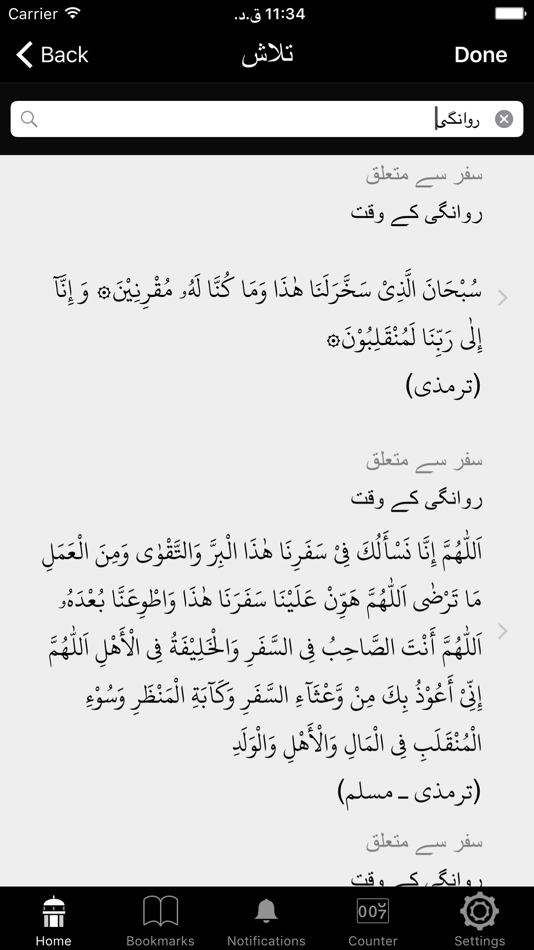 Carrier 11:34 ق.د.
Back تلاش Done
روانگی
سفر سے متعلق
روانگی کے وقت
سُبْحَانَ الَّذِیْ سَخَّرَلَنَا هٰذَا وَمَا كُنَّا لَهُۥ مُقْرِنِیْنَ۞ وَ إِنَّآ
إِلٰی رَبِّنَا لَمُنْقَلِبُوْنَ۞
(ترمذی)
سفر سے متعلق
روانگی کے وقت
اَللّٰهُمَّ إِنَّا نَسْأَلُكَ فِیْ سَفَرِنَا هٰذَا الْبِرَّ وَالتَّقْوٰی وَمِنَ الْعَمَلِ
مَا تَرْضٰی اَللّٰهُمَّ هَوِّنْ عَلَیْنَا سَفَرَنَا هٰذَا وَاطْوِعَنَّا بُعْدَهُۥ
اَللّٰهُمَّ أَنْتَ الصَّاحِبُ فِی السَّفَرِ وَالْخَلِیْفَةُ فِی الْأَهْلِ اَللّٰهُمَّ
إِنِّیْ أَعُوْذُ بِكَ مِنْ وَّعْثَآءِ السَّفَرِ وَكَآبَةِ الْمَنْظَرِ وَسُوْءِ
الْمُنْقَلَبِ فِی الْمَالِ وَالْأَهْلِ وَالْوَلَدِ
(ترمذی ـ مسلم)
سفر سے متعلق
روانگی کے وقت
007
Home Bookmarks Notifications Counter Settings